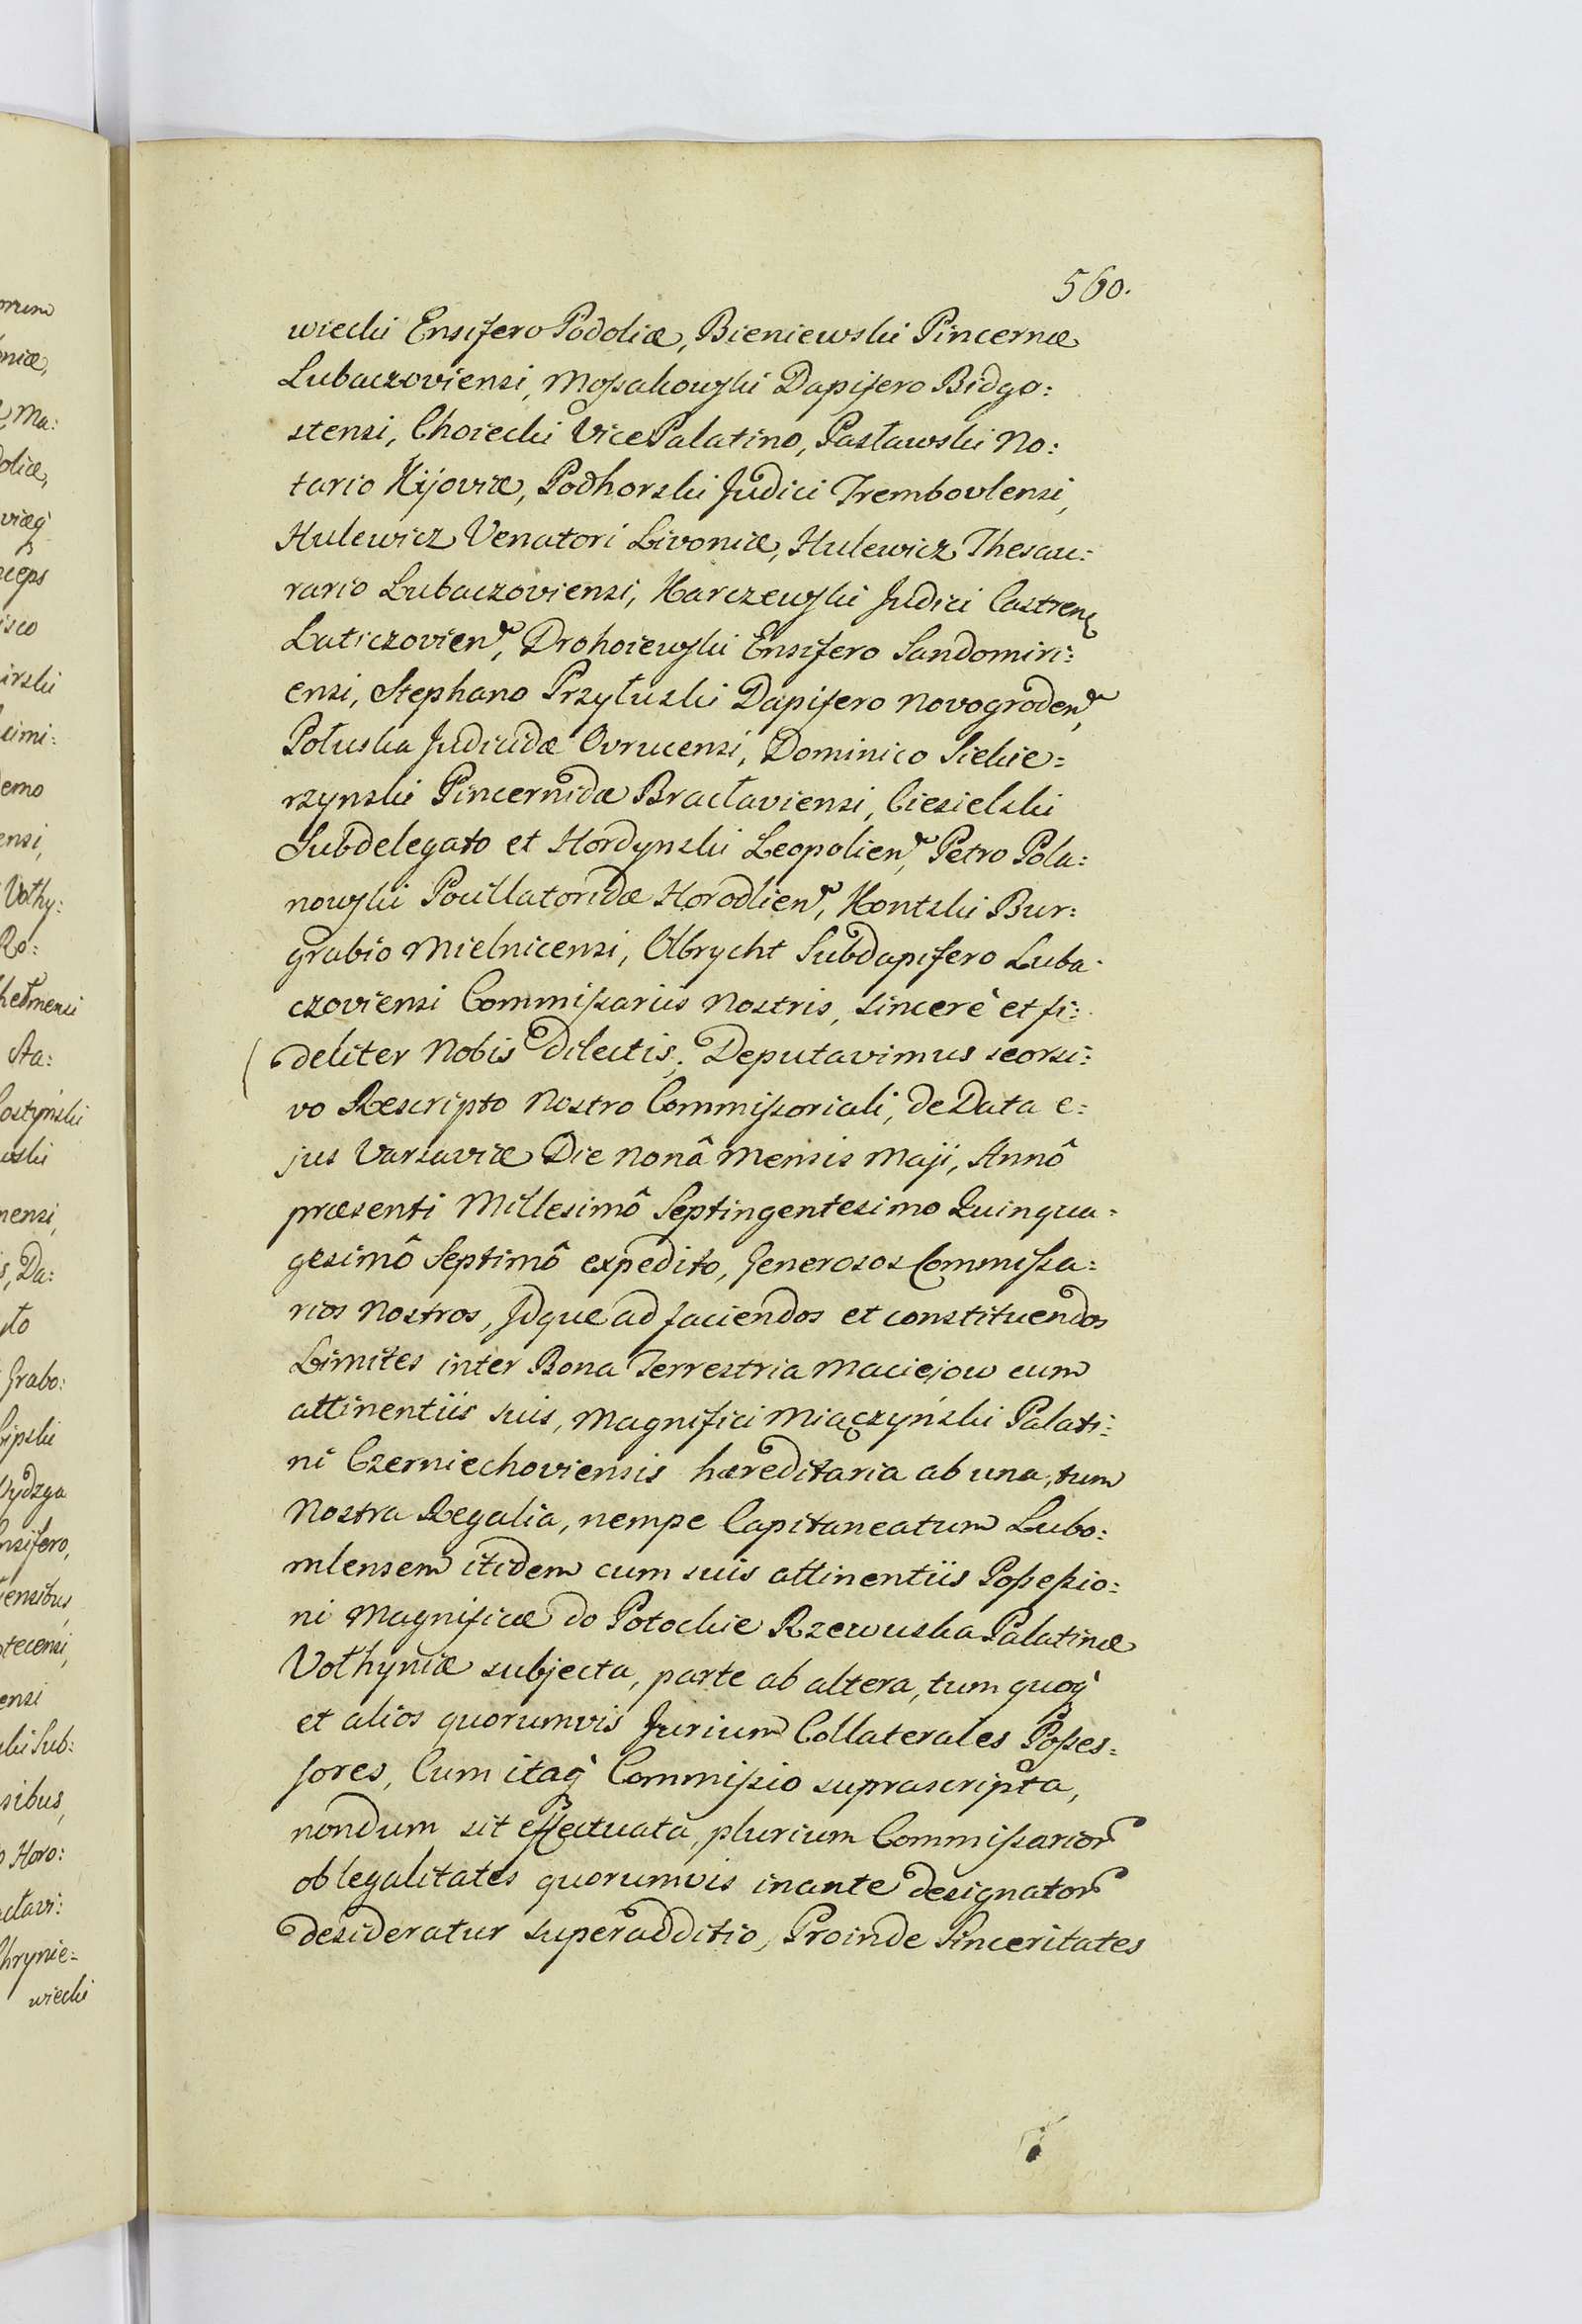 560.
wiecki Ensifero Podoliæ, Bieniewski Pincernæ
Lubaczoviensi, Mossakowski Dapifero Bidgo:
stensi, Choiecki VicePalatino, Pasławski No:
tario Kijoviæ, Podhorski Judici Trembovlensi,
Hulewicz Venatori Livoniæ, Hulewicz Thesau:
rario Lubaczoviensi, Karczewski Judici Castren
Laticzovien, Drohoiewski Ensifero Sandomiri:
ensi, Stephano Przyłuski Dapifero Novogroden,
Połuska Judicidæ Ovrucensi, Dominico Siekie=
rzynski Pincernidæ Bracłaviensi, Ciesielski
Subdelegato et Hordynski Leopolien, Petro Pola:
nowski Pocillatoridæ Horodlien, Kontski Bur:
grabio Mielnicensi, Olbrycht Subdapifero Luba:
czoviensi Commissariis Nostris, sincerè et fi:
deliter Nobis Dilectis, Deputavimus seorsi:
vo Rescripto Nostro Commissoriali, de Data e:
jus Varsaviæ Die Nonâ Mensis Maji, Annô
præsenti Millesimô Septingentesimo Quinqua:
gesimô Septimô expedito, Generosos Commissa:
rios Nostros, Idque ad faciendos et constituendos
Limites inter Bona Terrestria Maciejow cum
attinentiis suis, Magnifici Miączyński Palati:
ni Czerniechoviensis hæreditaria ab una, tum
Nostra Regalia, nempe Capitaneatum Lubo:
mlensem itidem cum suis attinentiis Possessio:
ni Magnificæ do Potockie Rzewuska Palatinæ
Vołhyniæ subjecta, parte ab altera, tum quoq̀
et alios quorumvis Jurium Collaterales Posses=
sores, Cum itaq̀ Commissio suprascripta,
nondum sit effectuata, plurium Commissarior
ob legalitates quorumvis inante designator
desideratur superadditio, Proinde Sinceritates